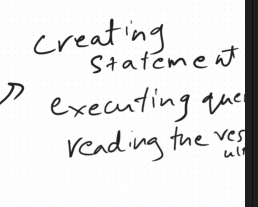 creating
statement
executing que
reading the res
ult